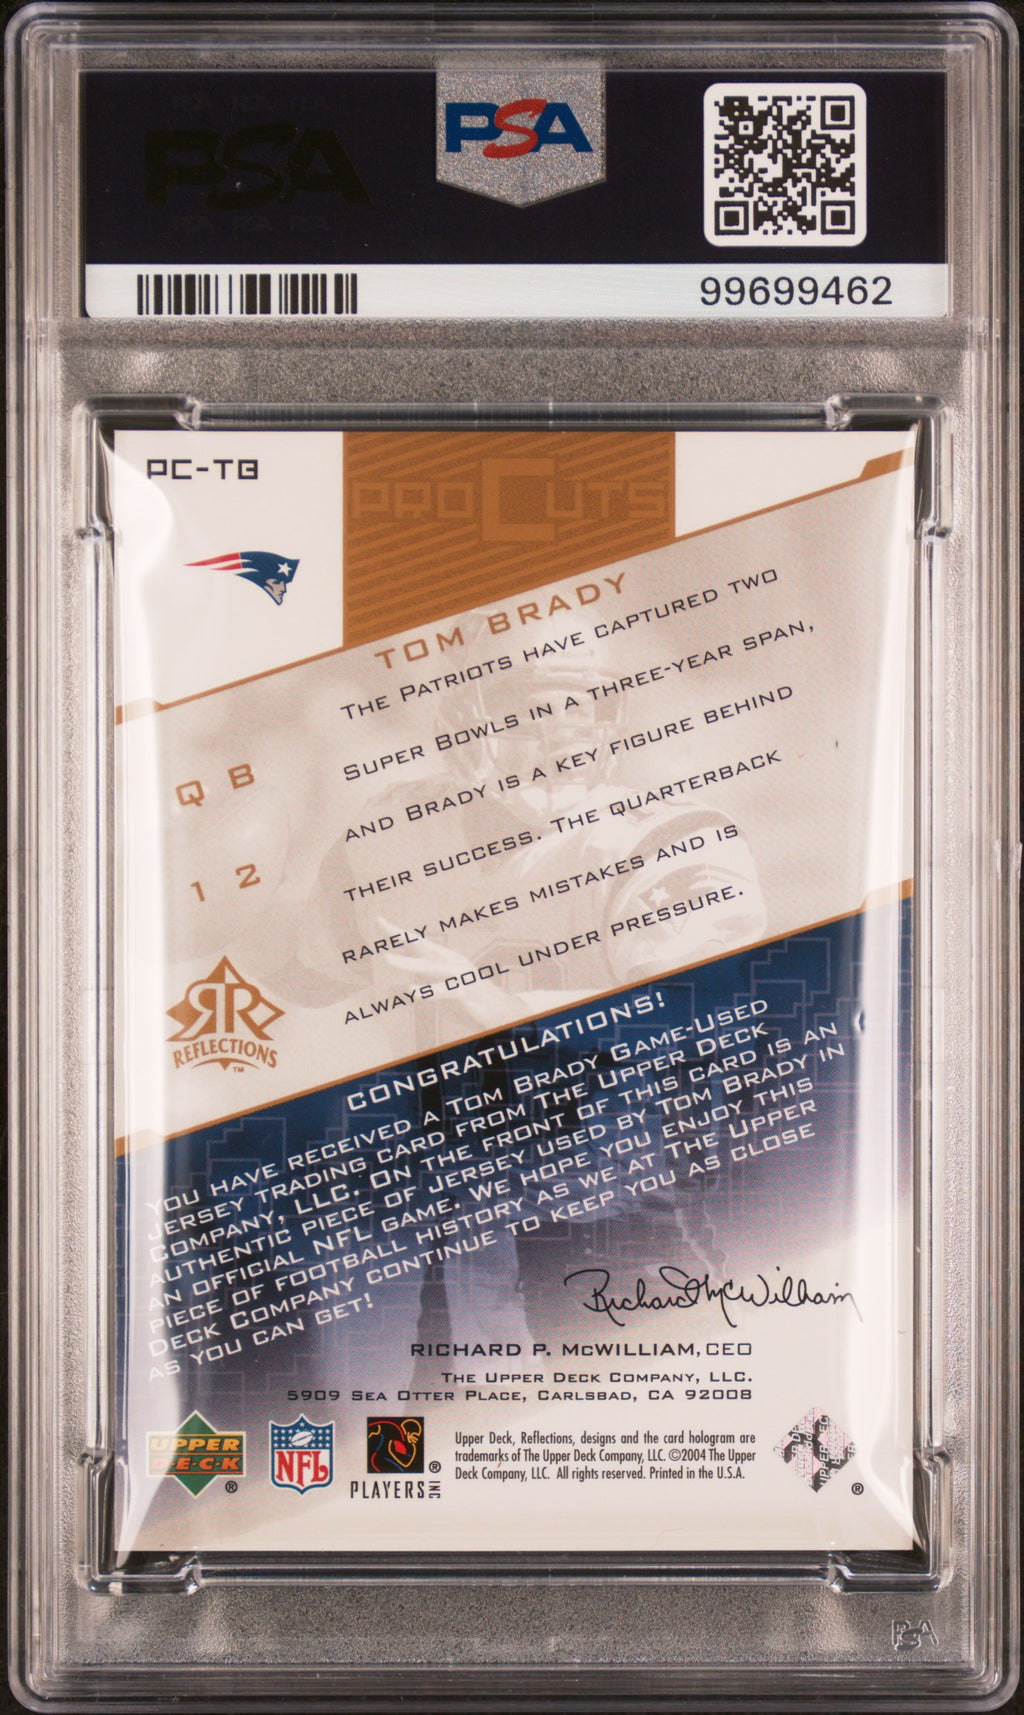 PSA
PSA
99699462
PC-TB
PRO CUTS
TOM BRADY
THE PATRIOTS HAVE CAPTURED TWO
SUPER BOWLS IN A THREE-YEAR SPAN,
AND BRADY IS A KEY FIGURE BEHIND
THEIR SUCCESS. THE QUARTERBACK
RARELY MAKES MISTAKES AND IS
ALWAYS COOL UNDER PRESSURE.
QB
12
RR
REFLECTIONS™
CONGRATULATIONS!
YOU HAVE RECEIVED A TOM BRADY GAME-USED
JERSEY TRADING CARD FROM THE UPPER DECK
COMPANY, LLC. ON THE FRONT OF THIS CARD IS AN
AUTHENTIC PIECE OF JERSEY USED BY TOM BRADY IN
AN OFFICIAL NFL GAME. WE HOPE YOU ENJOY THIS
PIECE OF FOOTBALL HISTORY AS WE AT THE UPPER
DECK COMPANY CONTINUE TO KEEP YOU AS CLOSE
AS YOU CAN GET!
Richard McWilliam
RICHARD P. MCWILLIAM, CEO
THE UPPER DECK COMPANY, LLC.
5909 SEA OTTER PLACE, CARLSBAD, CA 92008
UPPER
D·E·C·K ®
NFL
PLAYERS INC ®
Upper Deck, Reflections, designs and the card hologram are
trademarks of The Upper Deck Company, LLC. ©2004 The Upper
Deck Company, LLC. All rights reserved. Printed in the U.S.A.
®
PSA